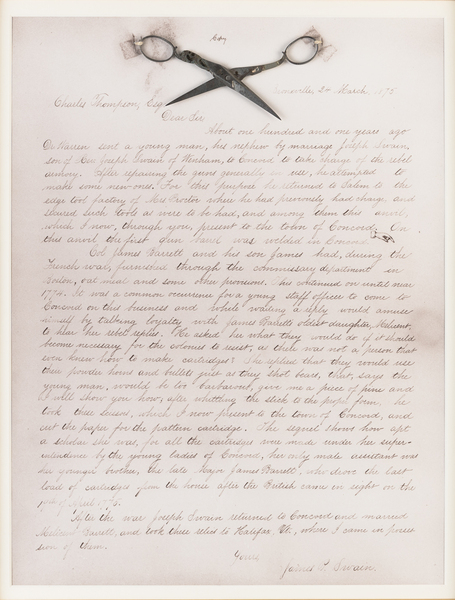 Copy
24 March, 1875
Charles Thompson, Esq
Dear Sir
About one hundred and one years ago
Dr Warren sent a young man, his nephew by marriage Joseph Swain,
son of Rev. Joseph Swain of Wenham, to Concord to take charge of the rebel
armory. After repairing the guns generally in use, he attempted to
make some new ones. For this purpose he returned to Salem to the
edge tool factory of Proctor where he had previously had charge, and
secured such tools as were to be had, and among them this anvil,
which I now, through you, present to the town of Concord. On
this anvil the first gun barrel was welded in Concord.
Col James Barrett and his son James had, during the
French war, furnished through the commissary department in
Boston, oat meal and some other provisions. This continued on until near
1774. It was a common occurrence for a young staff officer to come to
Concord on this business and while waiting a reply would amuse
himself by talking loyalty with James Barretts oldest daughter, Milicent,
to hear her rebel replies. He asked her what they would do if it should
become necessary for the colonies to resist, as there was not a person that
even knew how to make cartridges? She replied that they would use
their powder horns and bullets just as they shot bears, that, says the
young man, would be too barbarous, give me a piece of pine and
I will show you how; after whittling the stick to the proper form, he
took these scissors, which I now present to the town of Concord, and
cut the paper for the pattern cartridge. The sequel shows how apt
a scholar she was, for all the cartridges were made under her super-
intendence by the young ladies of Concord, her only male assistant was
her younger brother, the late Major James Barrett, who drove the last
load of cartridges from the house after the British came in sight on the
19th of April 1775.
After the war Joseph Swain returned to Concord and married
Milicent Barrett, and took these relics to Halifax, Vt., where I came in posses
sion of them.
Yours,
James P. Swain.